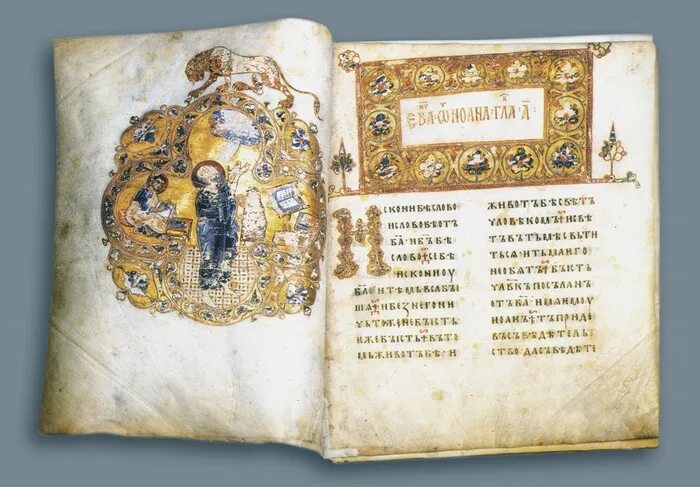 ЕВА ѠТ ИОАНА ГЛА А
ИСКОНИ БѢ СЛОВО
И СЛОВО БѢ ОТЪ
БА И БЪ БѢ
СЛОВО СЕ БѢ
ИСКОНИ ОУ
БА И ТѢМЬ ВЬСА БЫ
ША И БЕЖ НЕГО НИ
ЧЬТОЖЕ НЕ БЫСТЬ
ѤЖЕ БЫСТЬ ВЪ ТО
МЬ ЖИВОТЪ БѢ И
ЖИВОТЪ БѢ СВѢТ
Ъ ЧЛОВѢКОМЪ И СВѢ
ТЪ ВЪ ТЬМѢ СВЬТИ
ТЬСѦ И ТЬМА ѤГО
НЕ ОБѦТЪ БЫСТЬ
ЧЛВКЪ ПОСЪЛАНЪ
ОТЪ БА ИМѦ ѤМОУ
ИОАНЪ ТЪ ПРИДЕ
ВЪ СЪВѢДѢТЕЛЬ
СТВО ДА СЪВѢДѢТЕ